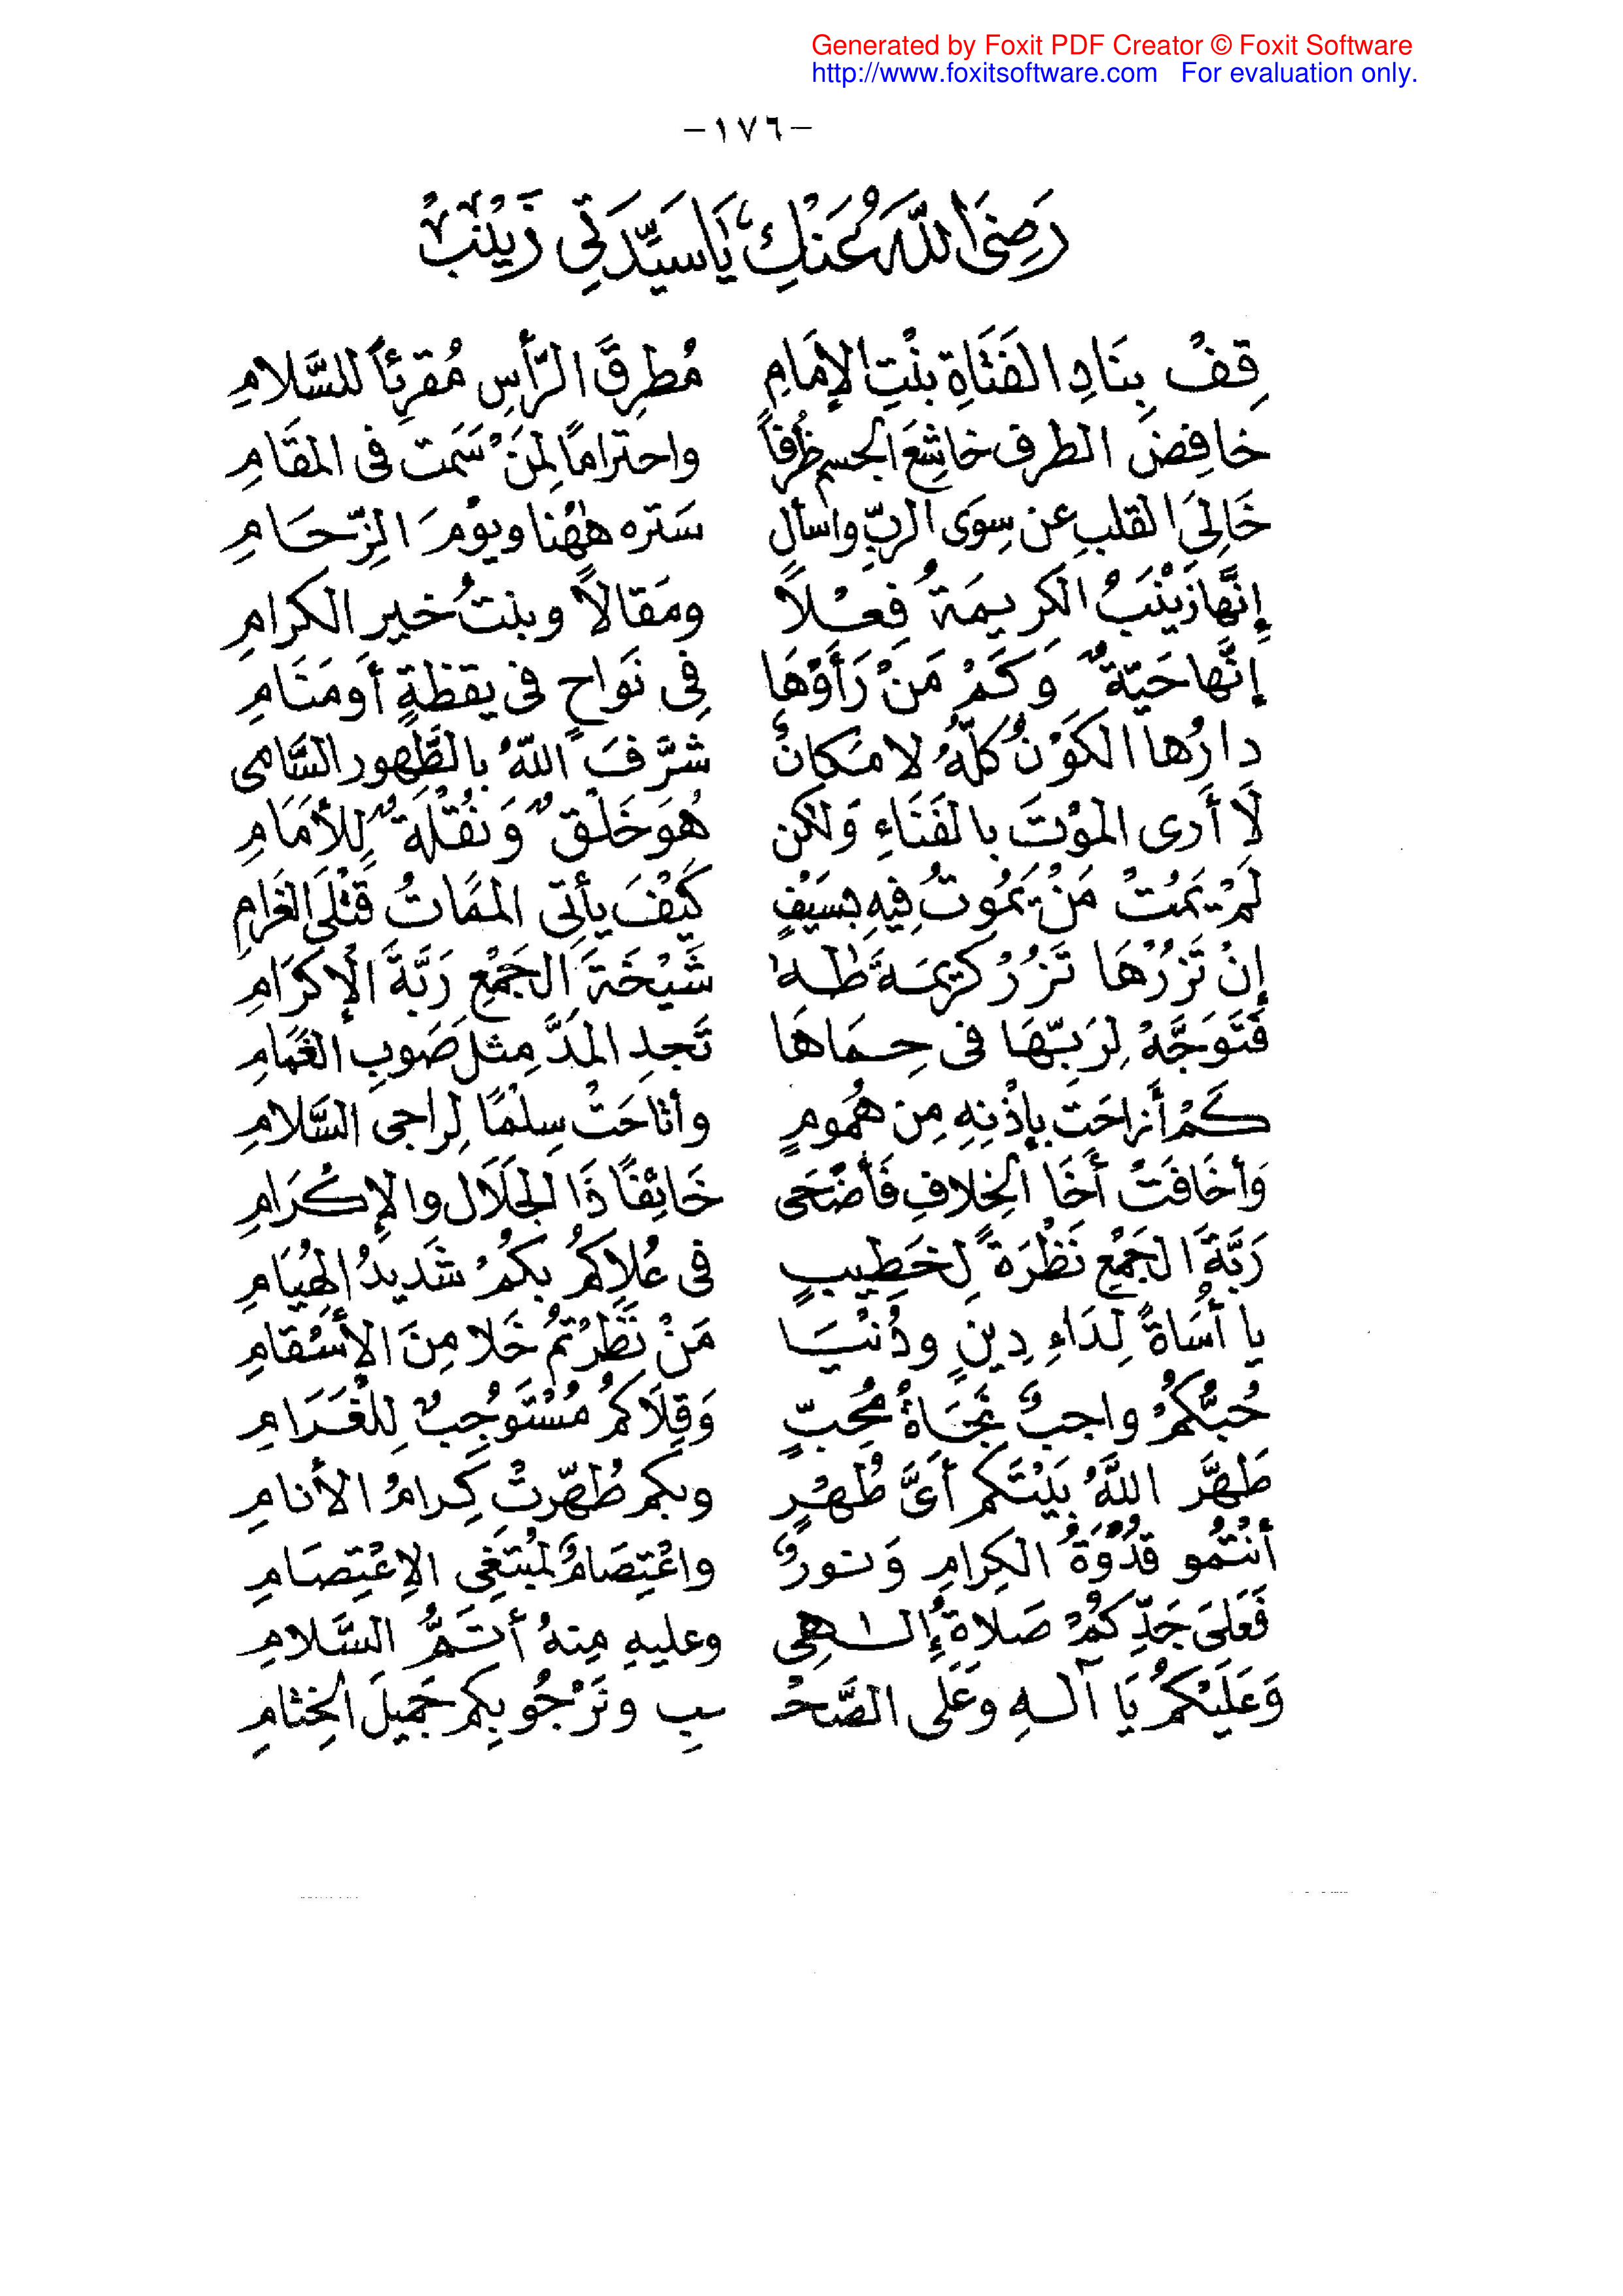 Generated by Foxit PDF Creator © Foxit Software
http://www.foxitsoftware.com   For evaluation only.
-١٧٦-
رَضِىَ اللَّهُ عَنْكِ يَا سَيِّدَتِي زَيْنَبْ
قِفْ بِنَادِ الفَتَاةِ بنْتِ الإمَامِ مُطرِقَ الرَّأسِ مُقرِئاً للسَّلامِ
خافِضَ الطرف خاشِعَ الجسم ظرفاً واحتراماً لِمَنْ سَمَت فى المقَامِ
خَالِىَ القلبِ عن سِوَى الربِّ واسألِ سَتره هٰهُنا ويوْمَ الزِّحَامِ
إنَّها زَيْنَبُ الكريمَةُ فِعْلاً ومَقالاً وبنتُ خيرِ الكرامِ
إنَّها حَيّةٌ وَكَمْ مَنْ رَأَوْهَا فِى نَواحٍ فى يقظةٍ أو مَنَامِ
دارُها الكَوْنُ كلّهُ لا مَكانٌ شرَّفَ اللهُ بالظَّهور السَّامى
لَا أَرى الموْتَ بالفَنَاءِ وَلكن هُوَ خَلْقٌ وَنُقْلَةٌ لِلأمَامِ
لَمْ يَمُتْ مَنْ يَمُوتُ فِيهِ بسَيْفٍ كَيْفَ يأتى المَمَاتُ قَتْلَى الغَرامِ
إنْ تَزُرْهَا تَزُرْ كريمَةَ طٰهٰ شَيْخَةَ الجَمْعِ رَبَّةَ الإكرَامِ
فَتَوَجَّهْ لِرَبّهَا فى حِمَاهَا تَجدِ المَدَّ مِثلَ صَوبِ الغَمَامِ
كَمْ أَزاحَت بإذْنِهِ مِن هُمُومٍ وأتاحَتْ سِلْمًا لِراجى السَّلامِ
وَأخَافَتْ أَخَا الخِلافِ فَأضْحَى خَائِفًا ذَا الجَلَالِ والإكْرَامِ
رَبَّةَ الجَمْعِ نَظْرَةً لِخَطِيبٍ فى عُلاكمُ بكمُْ شَديدُ الهُيَامِ
يا أُسَاةً لِدَاءِ دِينٍ ودُنْيَا مَنْ نَظَرْتمُ خَلا مِنَ الأسْقامِ
حُبُّكمُْ واجبٌ نَجَاةُ مُحِبٍّ وَقِلَاكمُ مُسْتَوْجِبٌ لِلْغَرَامِ
طَهَّر اللَّهُ بَيْتَكم أىَّ طُهْرٍ وبكم طُهّرتْ كِرامُ الأنامِ
أنْتُمو قدْوَةُ الكِرامِ وَنورٌ واعْتِصَامٌ لمُبتَغِى الإعْتِصَامِ
فَعَلَى جَدِّكمُْ صَلاةُ إلٰهِى وعليهِ مِنهُ أتَمُّ السَّلامِ
وَعَلَيْكمُ يَا آلهِ وعَلَى الصَّحْ ـبِ ونَرْجُو بِكم جَمِيلَ الخِتَامِ